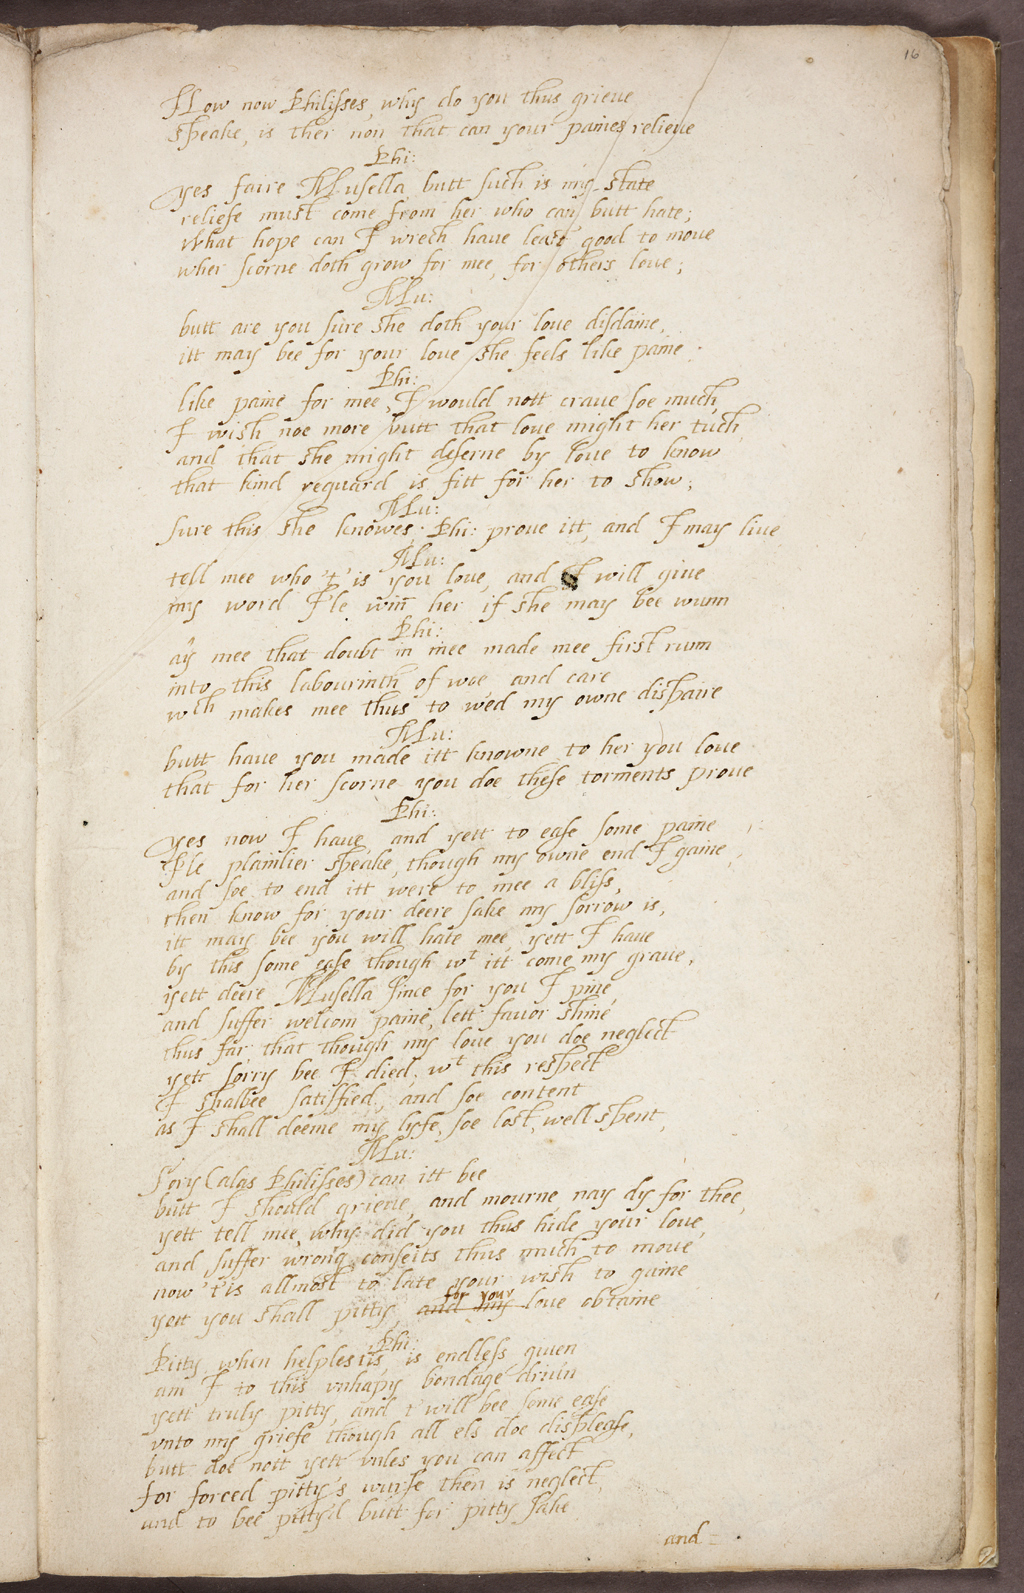 16
How now Philisses, why do you thus grieve
speake, is ther non that can your paines relieve
Phi:
yes faire Musella, butt such is my state
reliefe must come from her who can butt hate;
What hope can I wrech have least good to move
wher scorne doth grow for mee, for others love;
Mu:
butt are you sure she doth your love disdaine,
itt may bee for your love she feels like paine.
Phi:
like paine for mee, I would nott crave soe much,
I wish noe more butt that love might her tuch,
and that she might deserne by love to know
that kind reguard is fitt for her to show;
Mu:
sure this she knowes; Phi: prove itt, and I may live
Mu:
tell mee who 't'is you love, and I will give
my word I'le winn her if she may bee wunn
Phi:
ay mee that doubt in mee made mee first runn
into this labourinth of woe and care
wch makes mee thus to wed my owne dispaire
Mu:
butt have you made itt knowne to her you love
that for her scorne you doe these torments prove
Phi:
yes now I have, and yett to ease some paine
I'le plainlier speake, though my owne end I gaine,
and soe to end itt were to mee a bliss,
then know for your deere sake my sorrow is,
itt may bee you will hate mee, yett I have
by this some ease though wt itt come my grave,
yett deere Musella since for you I pine
and suffer welcom paine, lett favor shine
thus far, that though my love you doe neglect
yett sorry bee I died, wt this respect
I shalbee satisfied, and soe content
as I shall deeme my lyfe, soe lost, well spent,
Mu:
Sory (alas Philisses) can itt bee
butt I should grieve, and mourne, nay dy for thee,
yett tell mee, why did you thus hide your love,
and suffer wrong conseits thus much to move
now 't'is allmost to late your wish to gaine
for your
yett you shall pitty, and my love obtaine
Phi:
Pitty when helples tis, is endless given
am I to this unhapy bondage drivin
yett truly pitty, and t'will bee some ease
unto my griefe though all els doe displease,
butt doe nott yett unles you can affect
for forced pitty's wurse then is neglect,
and to bee pitty'd butt for pitty sake
and =